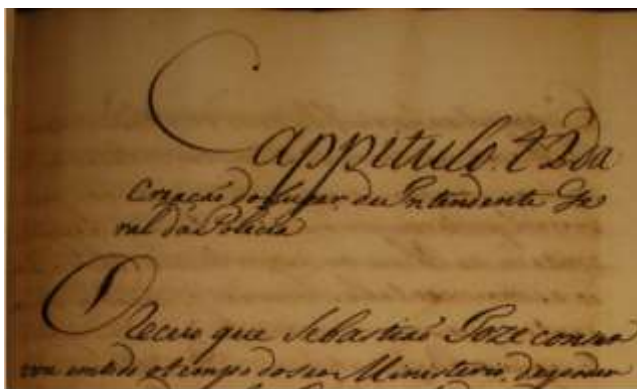 Cappitulo. 42 da
Creação do Lugar de Intendente Ge
ral da Policia
O Receio que Sebastiaõ Joze conser
vou em todo o tempo do seo Ministerio